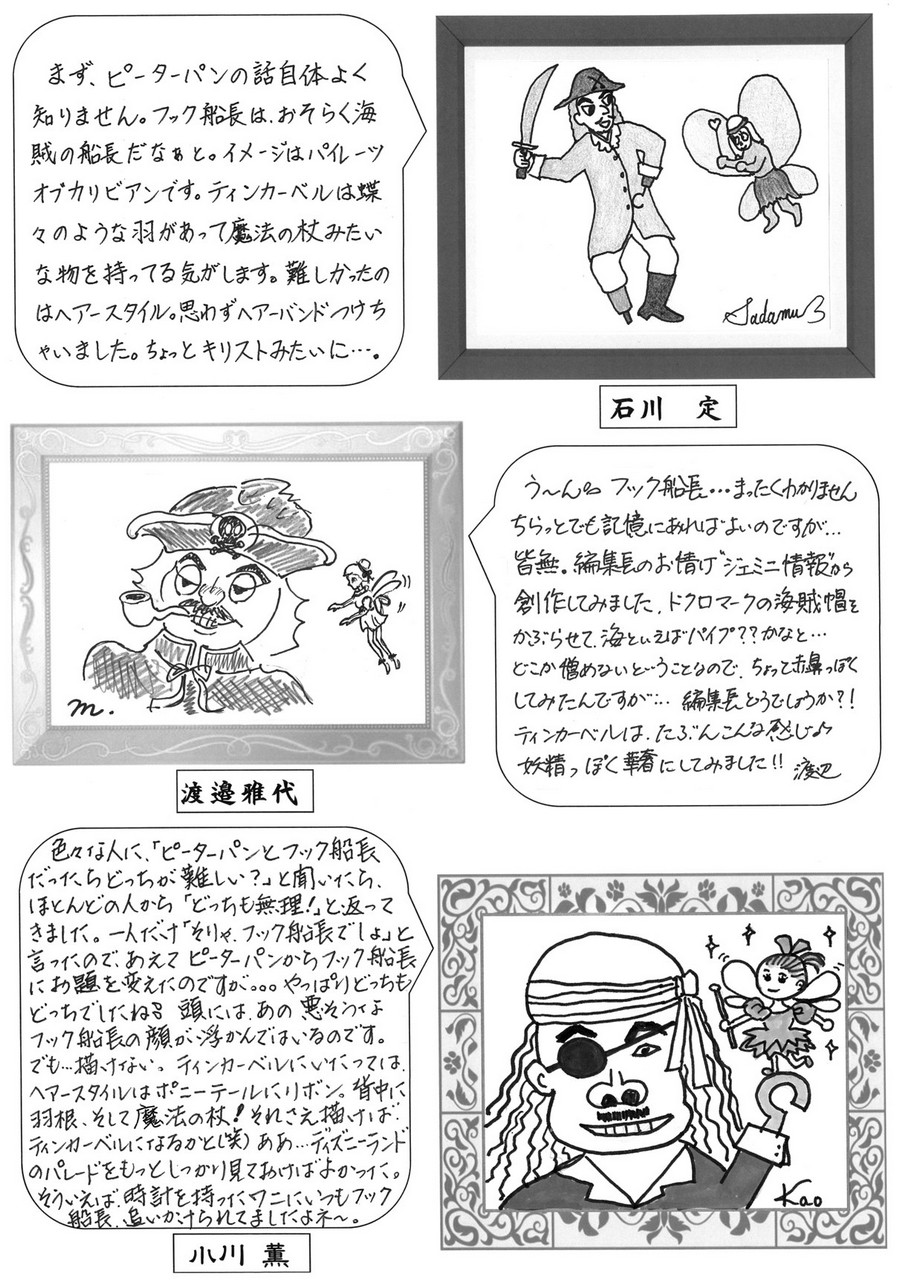 まず、ピーターパンの話自体よく
知りません。フック船長は、おそらく海
賊の船長だなぁと。イメージはパイレーツ
オブカリビアンです。ティンカーベルは蝶
々のような羽があって魔法の杖みたい
な物を持ってる気がします。難しかったの
はヘアースタイル。思わずヘアーバンドつけち
ゃいました。ちょっとキリストみたいに…。
Sadamu
石川 定
う〜ん。フック船長…まったくわかりません
ちらっとでも記憶にあればよいのですが…
皆無。編集長のお情け ジェミニ情報から
創作してみました。ドクロマークの海賊帽を
かぶらせて、海といえばパイプ??かなと…
どこか憎めないということなので、ちょって赤鼻っぽく
してみたんですが… 編集長どうでしょうか?!
ティンカーベルは、たぶんこんな感じよっ
妖精っぽく華奢にしてみました!! 渡辺
m.
渡邉雅代
色々な人に、「ピーターパンとフック船長
だったらどっちが難しい?」と聞いたら、
ほとんどの人から「どっちも無理!」と返って
きました。一人だけ「そりゃ、フック船長でしょ」と
言ったので、あえてピーターパンからフック船長
にお題を変えたのですが。。。やっぱりどっちも
どっちでしたね 頭には、あの悪そうな
フック船長の顔が浮かんではいるのです。
でも…描けないっ ティンカーベルにいたっては、
ヘアースタイルはポニーテールにリボン。背中に
羽根、そして魔法の杖!それさえ描けば
ティンカーベルになるかと(笑)ああ…ディズニーランド
のパレードをもっとしっかり見ておけばよかった。
そういえば、時計を持ったワニにいつもフック
船長、追いかけられてましたよネ〜。
Kao
小川 薫